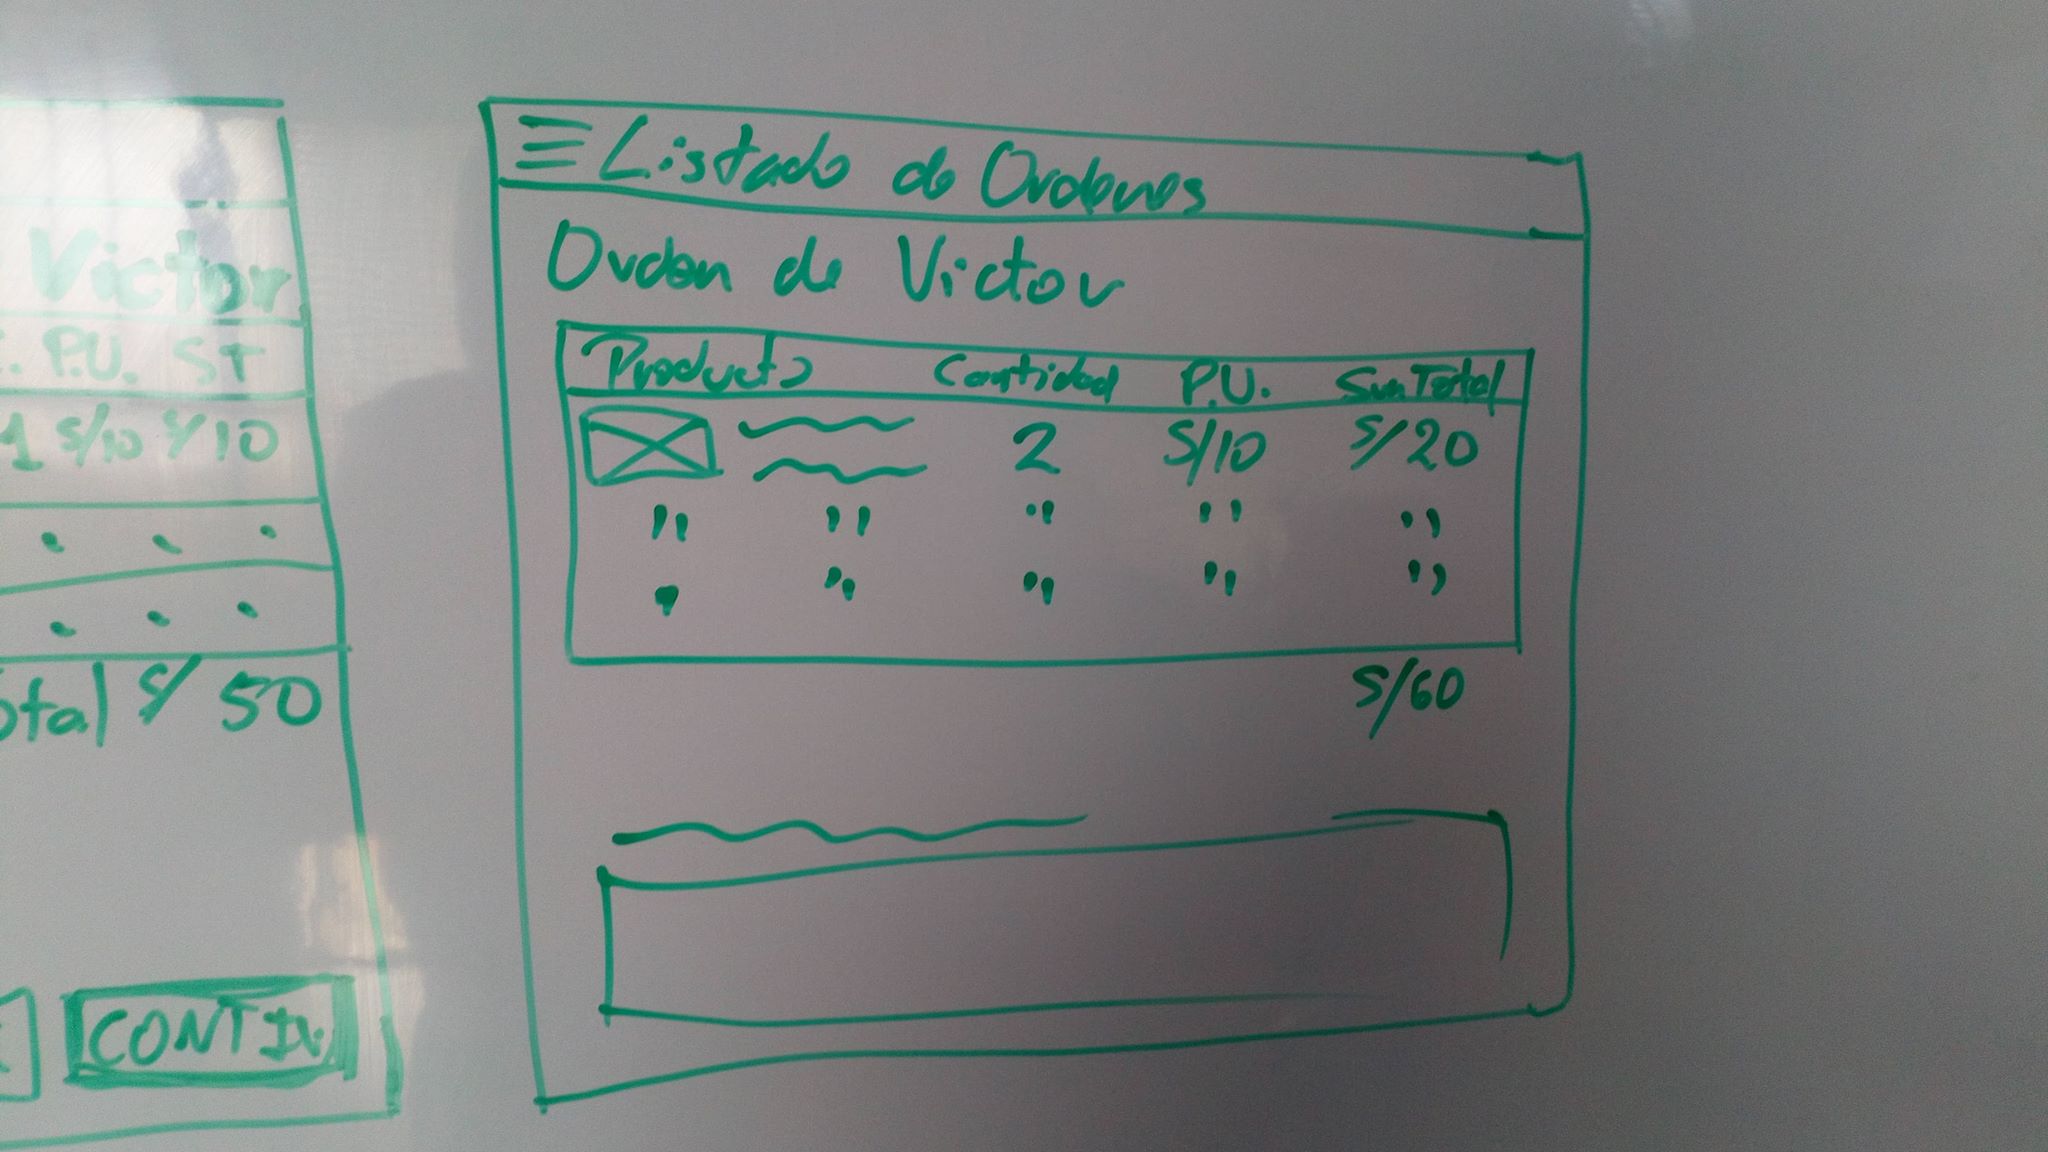 Victor
P.U. ST
1 S/10 S/10
otal S/ 50
CONTIN
Listado de Ordenes
Orden de Victor
Producto Cantidad P.U. SubTotal
2 S/10 S/20
" " " " "
" " " " "
S/60